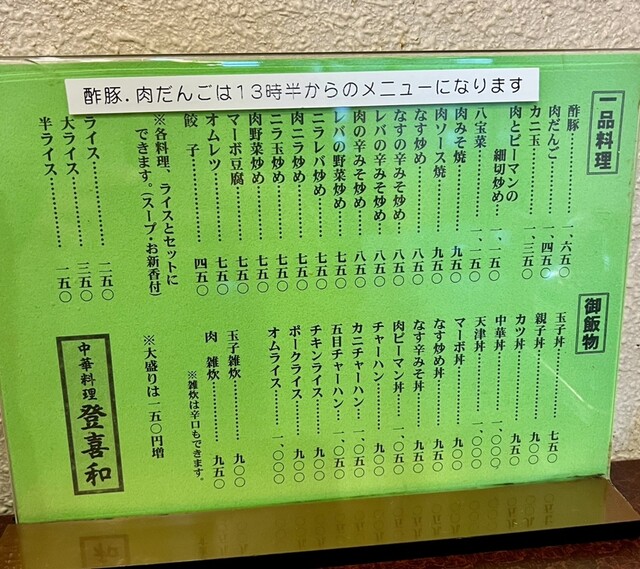 酢豚.肉だんごは13時半からのメニューになります
一品料理
酢豚………一、六五〇
肉だんご………一、四五〇
カニ玉………一、三五〇
肉とピーマンの
細切炒め…一、一五〇
八宝菜………一、一五〇
肉みそ焼………九五〇
肉ソース焼………九五〇
なす炒め………八五〇
なすの辛みそ炒め……八五〇
レバの辛みそ炒め……八五〇
肉の辛みそ炒め……八五〇
レバの野菜炒め……七五〇
ニラレバ炒め………七五〇
肉ニラ炒め………七五〇
ニラ玉炒め………七五〇
肉野菜炒め………七五〇
マーボ豆腐………七五〇
オムレツ………七五〇
餃子………四五〇
※各料理、ライスとセットに
できます。(スープ・お新香付)
ライス………二五〇
大ライス………三五〇
半ライス………一五〇
御飯物
玉子丼………七五〇
親子丼………九〇〇
カツ丼………九五〇
中華丼………一、〇〇〇
天津丼………一、〇〇〇
マーボ丼………九〇〇
なす炒め丼………九〇〇
なす辛みそ丼……九〇〇
肉ピーマン丼……一、〇五〇
チャーハン………九〇〇
カニチャーハン…一、〇五〇
五目チャーハン…一、〇五〇
チキンライス……九〇〇
ポークライス……九〇〇
オムライス………一、〇〇〇
玉子雑炊………九〇〇
肉 雑炊………九五〇
※雑炊は辛口もできます。
※大盛りは一五〇円増
中華料理 登喜和